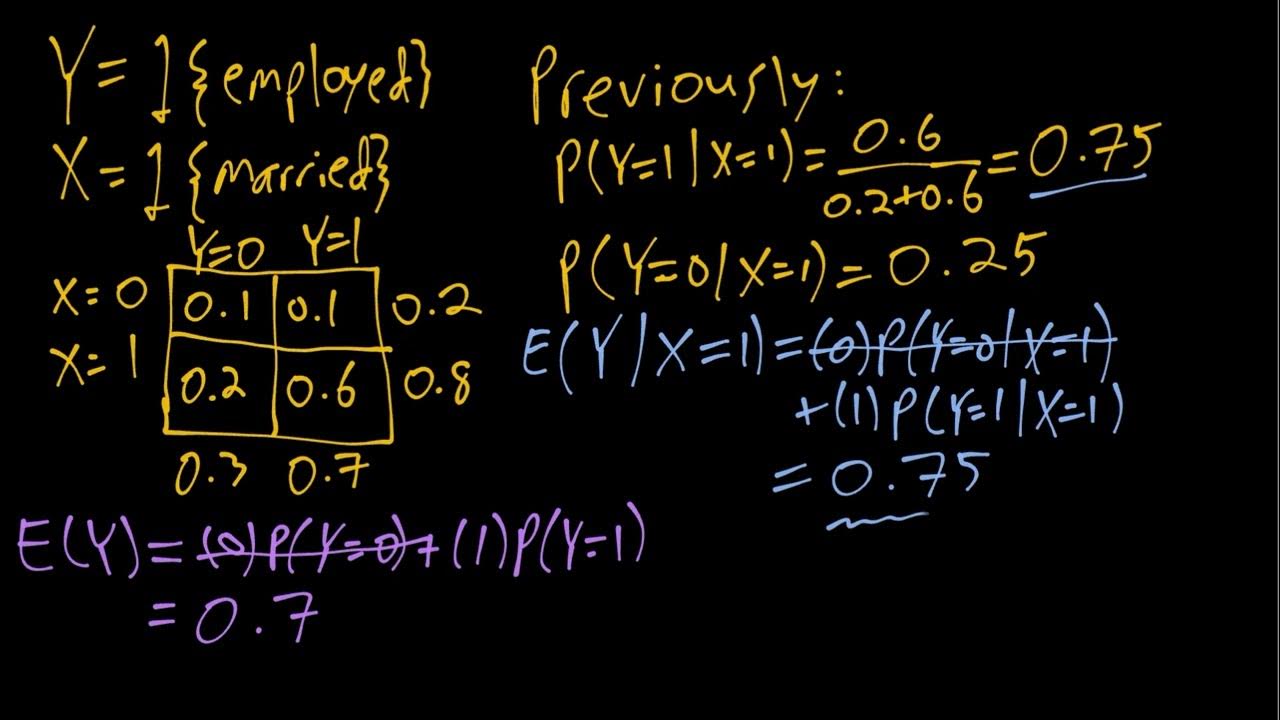 Y = 1 {employed}
X = 1 {married}
Y=0 Y=1
X=0 0.1 0.1 0.2
X=1 0.2 0.6 0.8
0.3 0.7
E(Y) = (0)P(Y=0)+(1)P(Y=1)
= 0.7
Previously:
P(Y=1|X=1) = 0.6
0.2+0.6
= 0.75
P(Y=0|X=1) = 0.25
E(Y|X=1) = (0)P(Y=0|X=1)
+(1)P(Y=1|X=1)
= 0.75